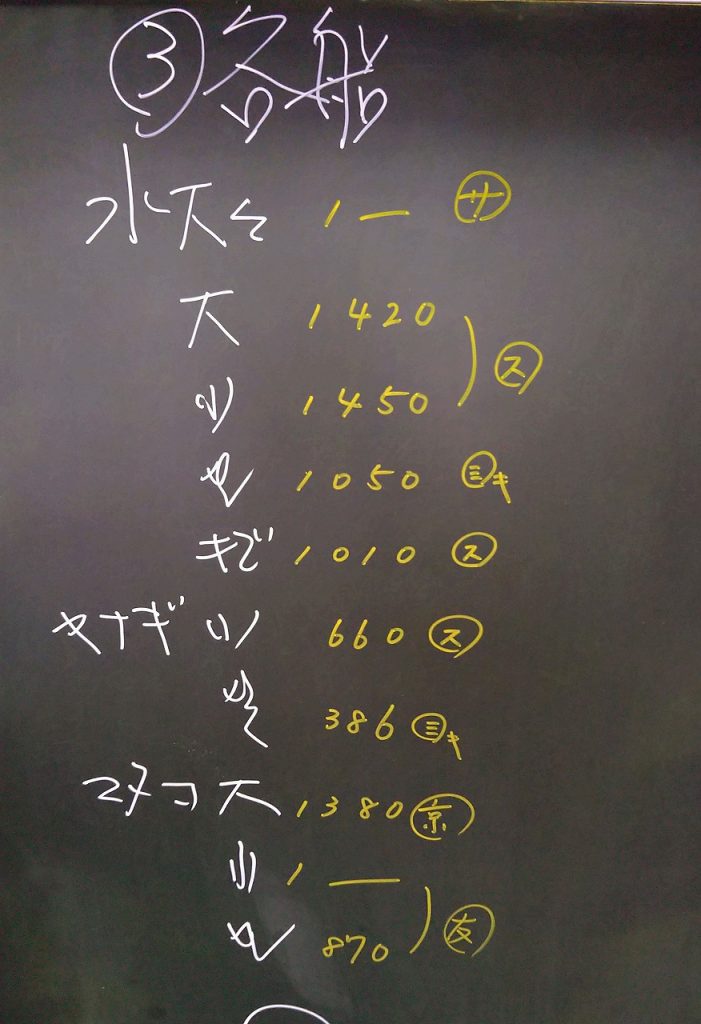 ③各船
水大々 1― サ
大 1420
小 1450 ス
1050 ミキ
キズ 1010 ス
ヤナギ 小 660 ス
386 ミキ
マダコ 大 1380 京
小 1―
870 友